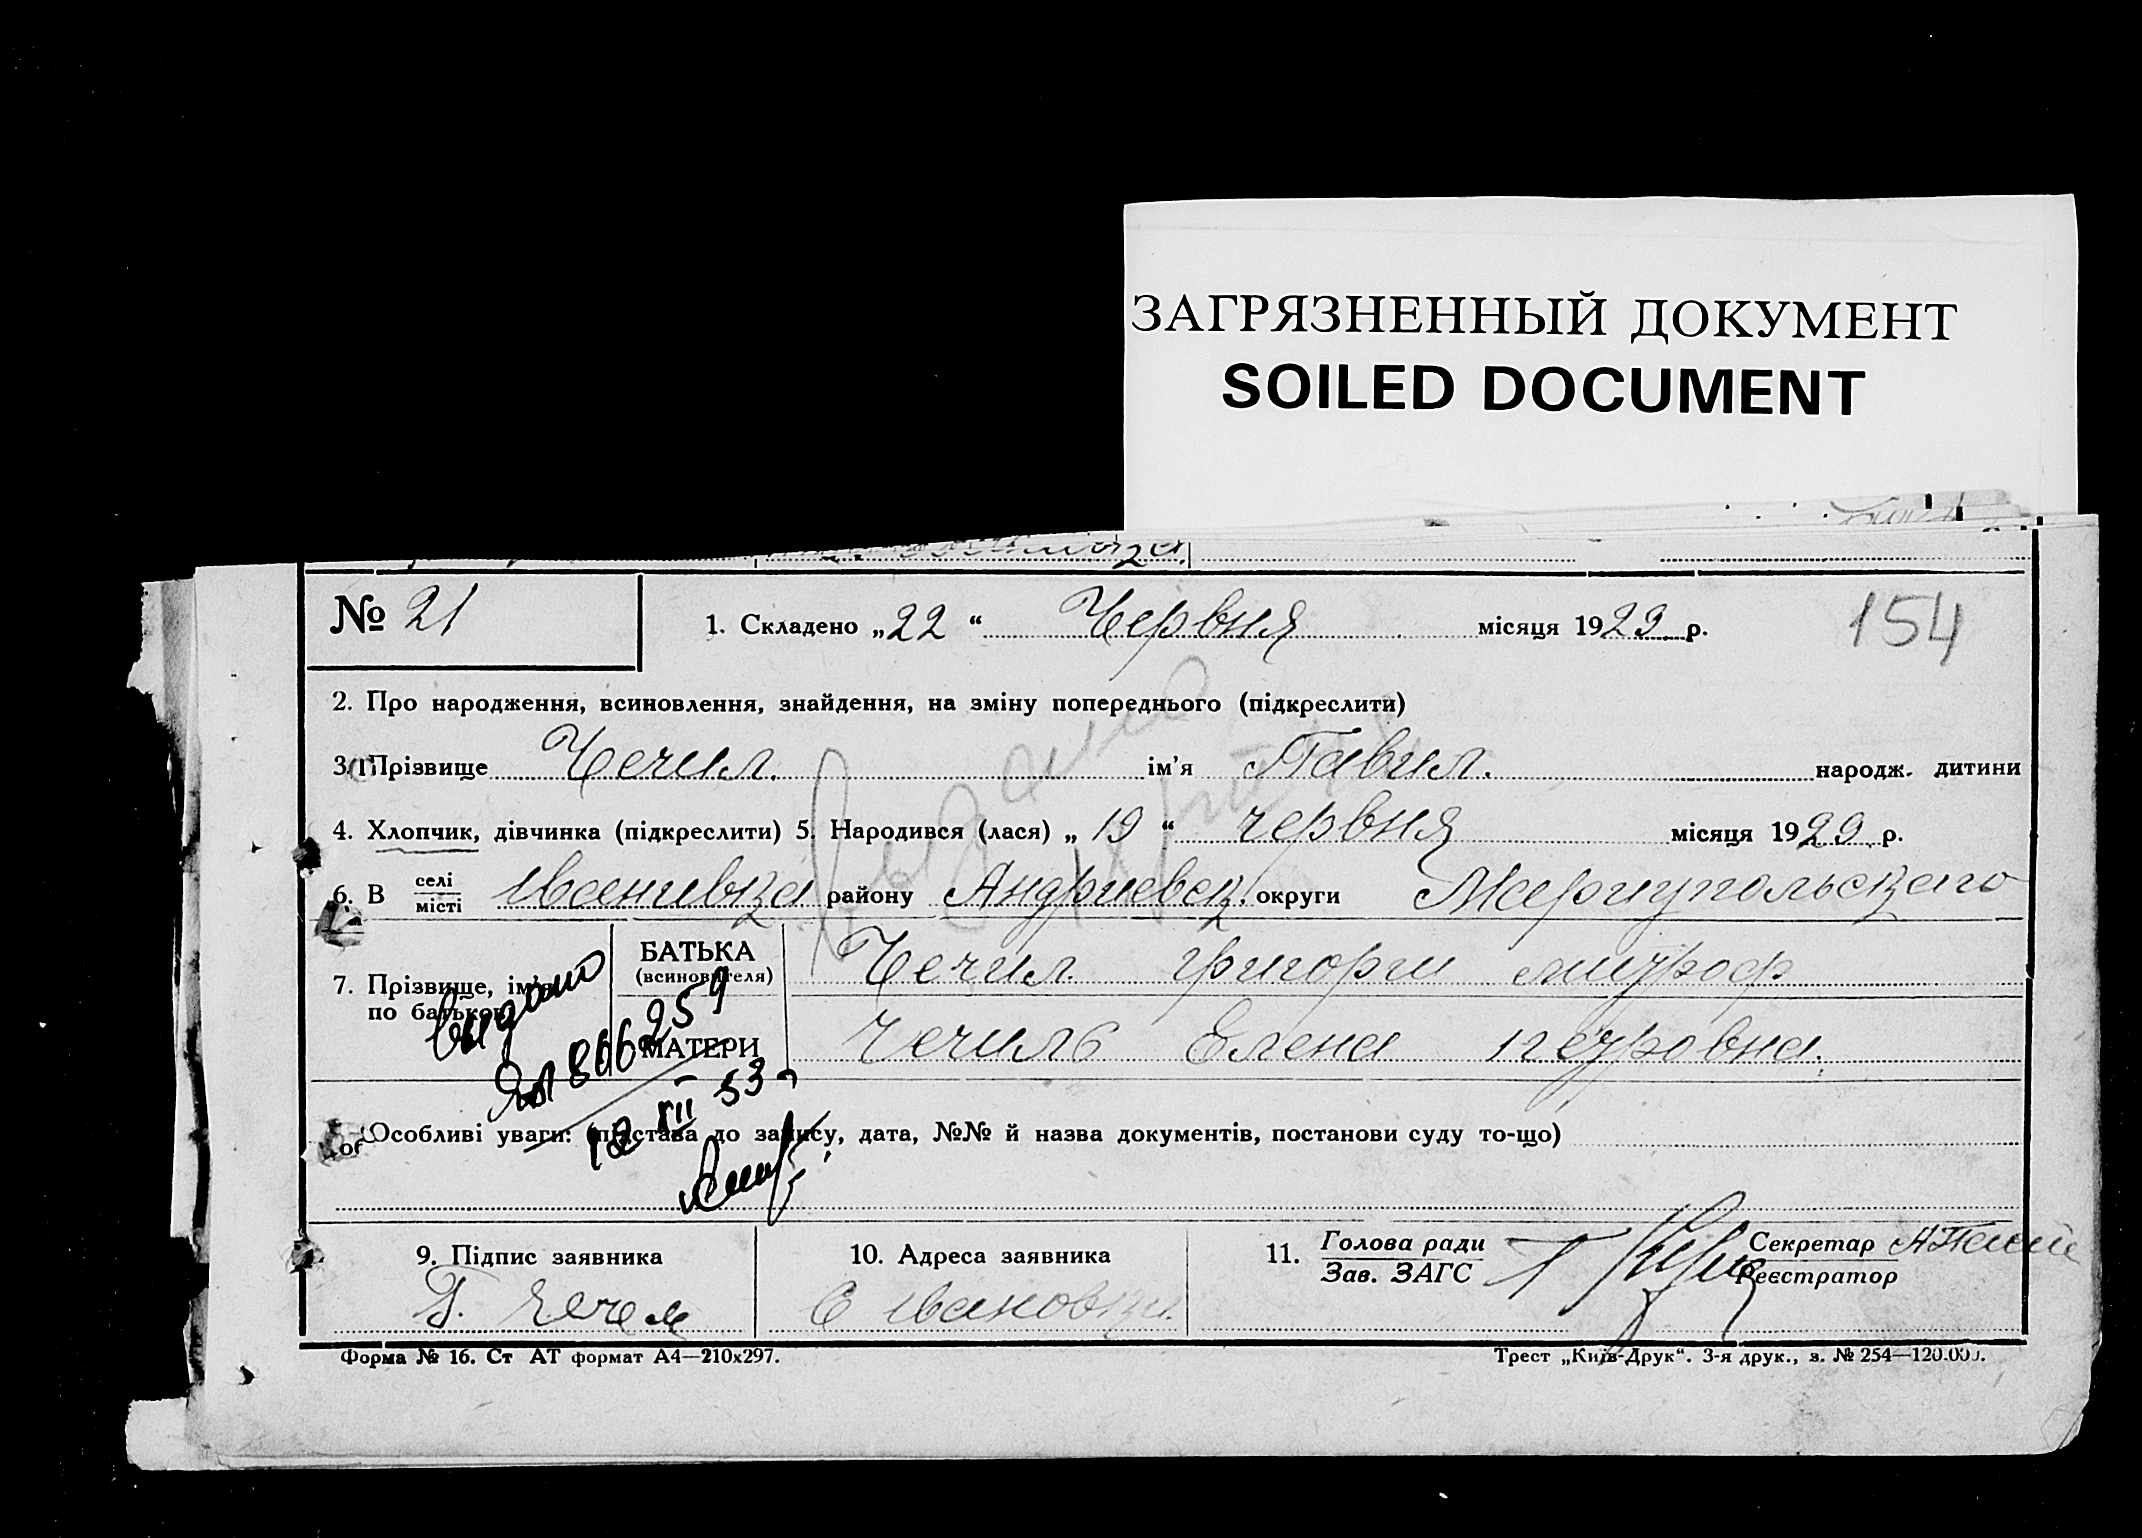 ЗАГРЯЗНЕННЫЙ ДОКУМЕНТ
SOILED DOCUMENT
№ 21
1. Складено „22“ Червня місяця 1929 р.
154
2. Про народження, всиновлення, знайдення, на зміну попереднього (підкреслити)
3. Прізвище Чечил. ім'я Павил. народж. дитини
4. Хлопчик, дівчинка (підкреслити) 5. Народився (лася) „19“ червня місяця 1929 р.
6. В селі місті Иванивка району Андриевск. округи Мариупольского
7. Прізвище, ім'я по батькові
БАТЬКА (всиновителя) Чечил Григори митроф
МАТЕРИ Чечиль Елена петровна.
выдано
ЯЛ 866259
12 XII 53 г
Особливі уваги: (підстава до запису, дата, №№ й назва документів, постанови суду то-що)
9. Підпис заявника
Г. Чечел
10. Адреса заявника
С Ивановка.
11. Голова ради
Зав. ЗАГС
Секретар
Реєстратор
Форма № 16. Ст АТ формат А4—210x297.
Трест „Київ-Друк“. 3-я друк., з. № 254—120.000.